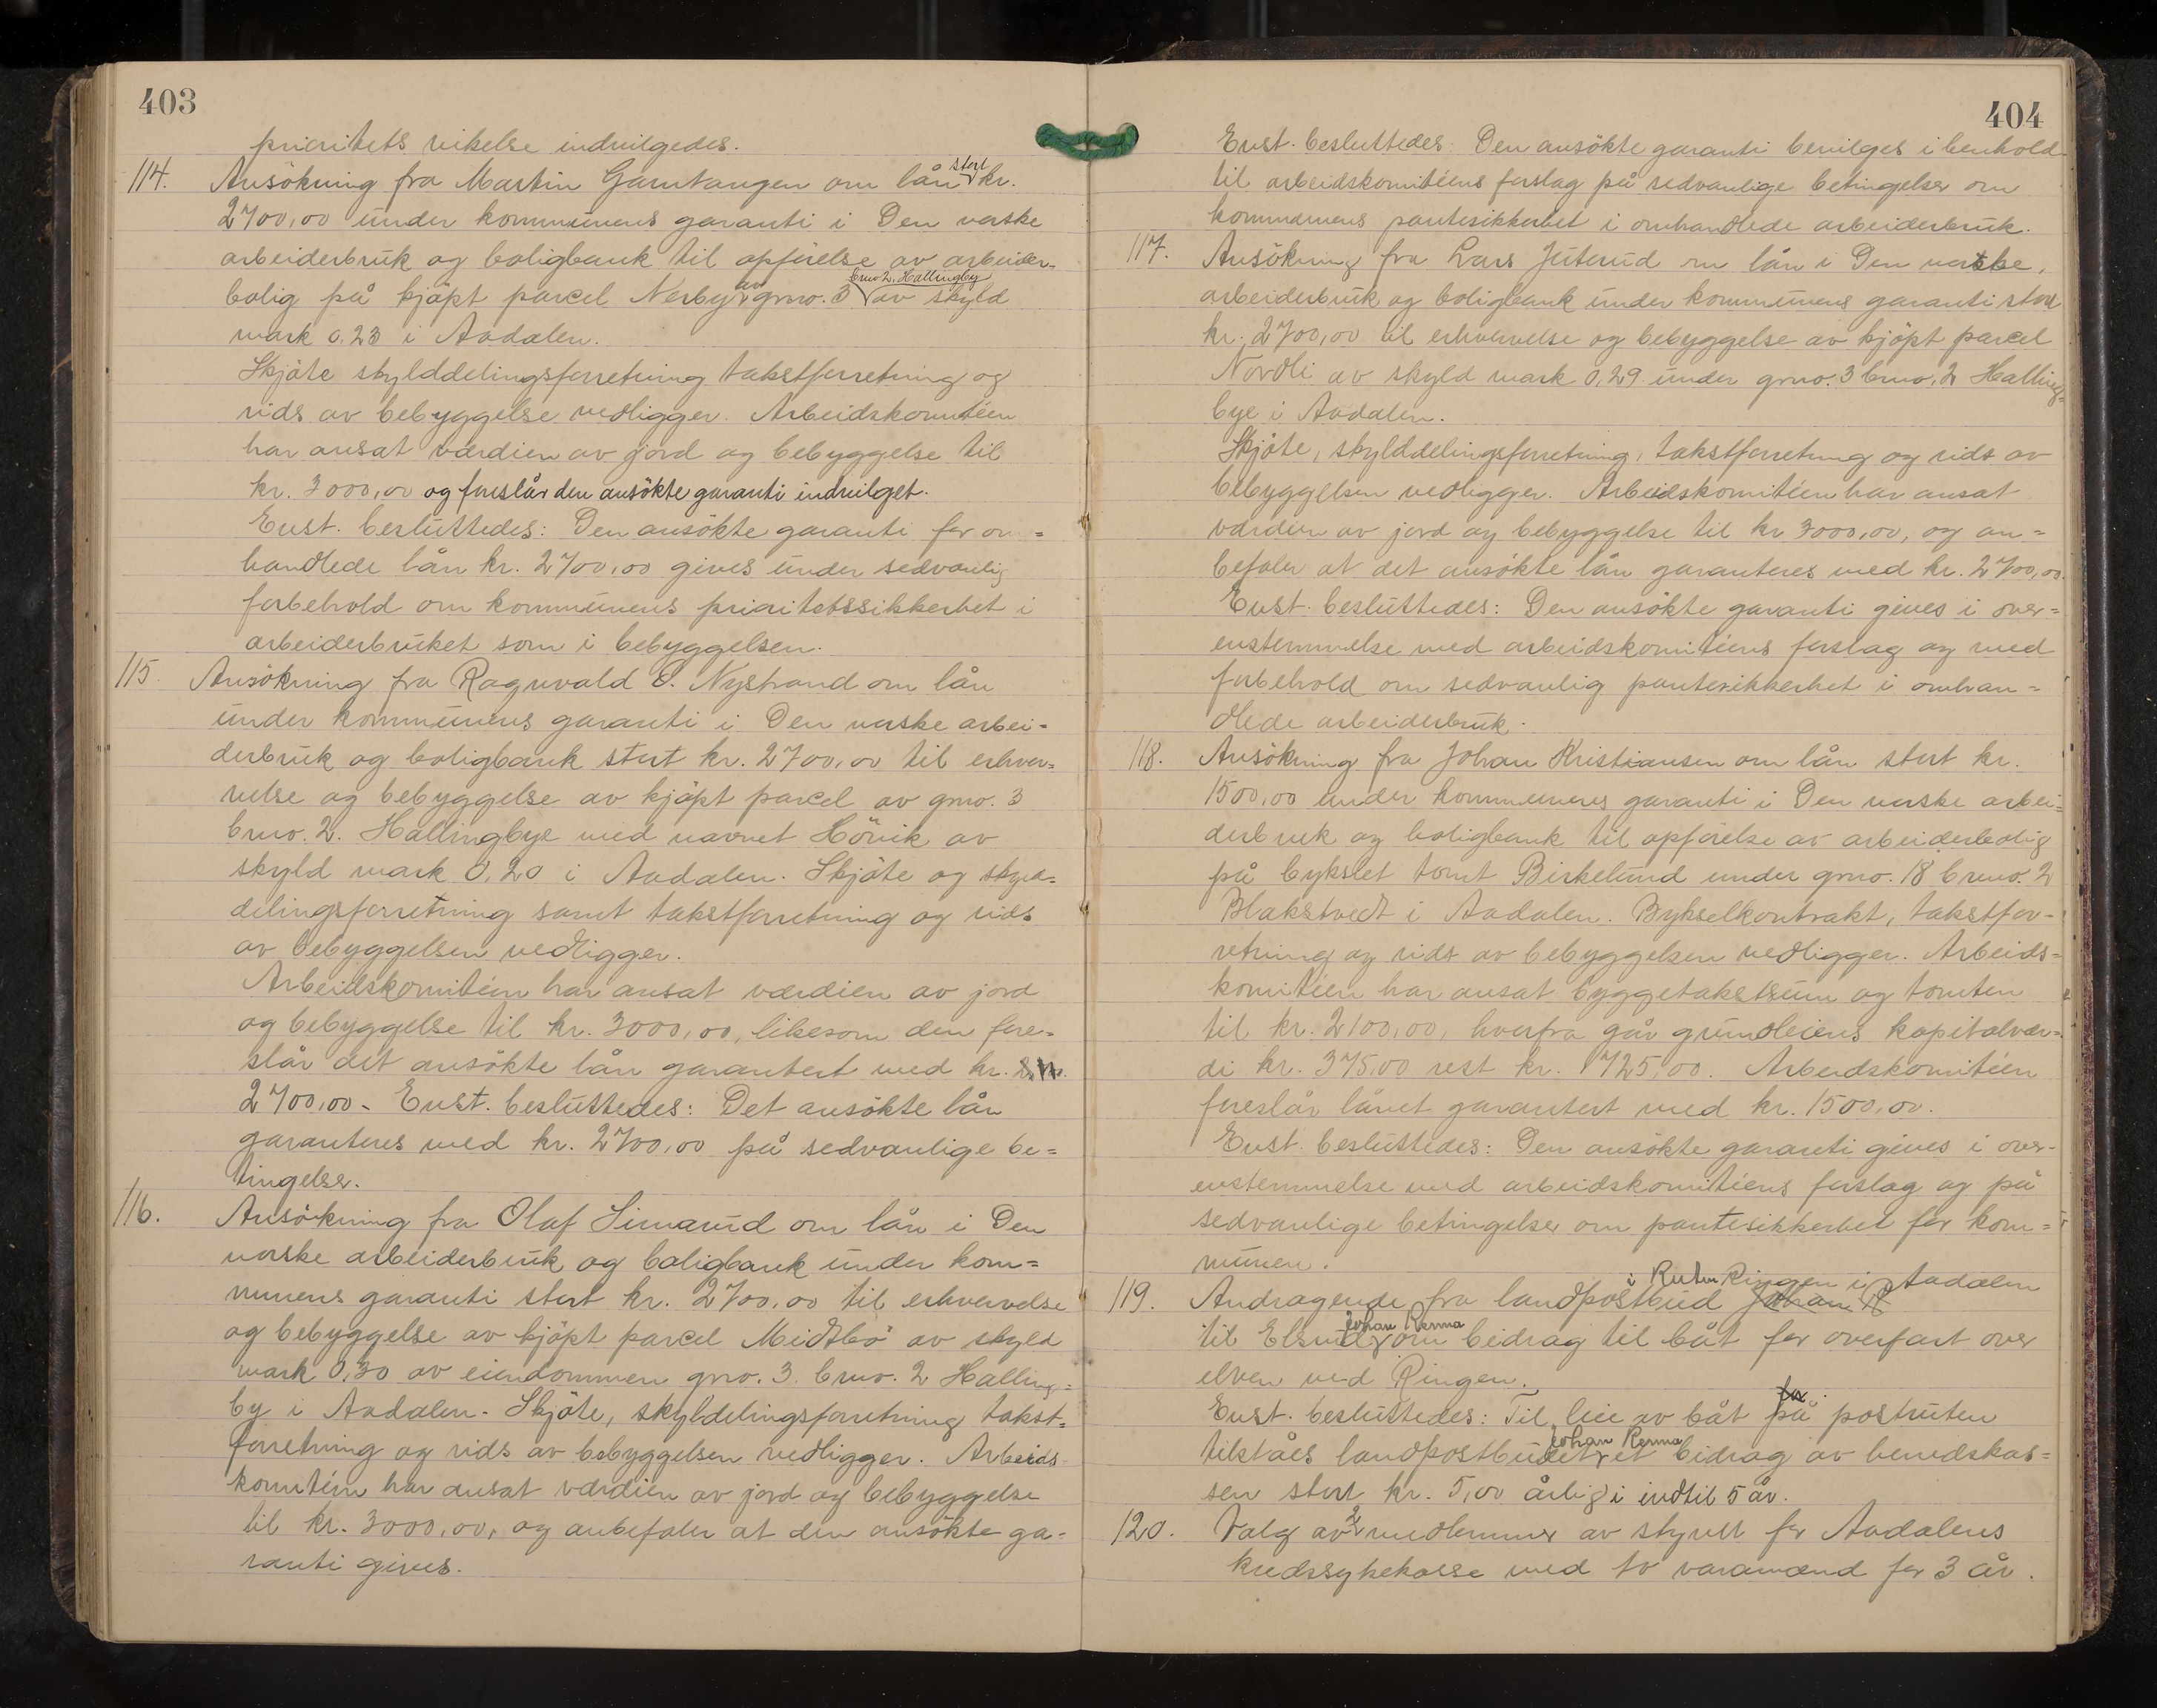 403
prioritets vikelse indvilgedes.
114. Ansökning fra Martin Garntangen om lån stort kr.
2700,00 under kommunens garanti i Den norske
arbeiderbruk og boligbank til opförelse av arbeider-
bolig på kjöpt parcel Nerby av grno. 3 brno 2, Hallingby av skyld
mark 0,23 i Aadalen.
Skjöte skylddelingsforretning takstforretning og
rids av bebyggelse vedligger. Arbeidskomitéen
har ansat værdien av jord og bebyggelse til
kr. 3000,00 og foreslår den ansökte garanti indvilget.
Enst. besluttedes: Den ansökte garanti for om=
handlede lån kr. 2700,00 gives under sedvanlig
forbehold om kommunens prioritetssikkerhet i
arbeiderbruket som i bebyggelsen.
115. Ansökning fra Ragnvald E. Nystrand om lån
under kommunens garanti i Den norske arbei-
derbruk og boligbank stort kr. 2700,00 til erhver-
velse og bebyggelse av kjöpt parcel av grno. 3
brno. 2. Hallingbye med navnet Hövik av
skyld mark 0,20 i Aadalen. Skjöte og skyld-
delingsforretning samt takstforretning og rids
av bebyggelsen vedligger.
Arbeidskomitéen har ansat værdien av jord
og bebyggelse til kr. 3000,00, likesom den fore-
slår det ansökte lån garantert med kr.
2700,00 - Enst. besluttedes: Det ansökte lån
garanteres med kr. 2700,00 på sedvanlige be=
tingelser.
116. Ansökning fra Olaf Simarud om lån i Den
norske arbeiderbruk og boligbank under kom=
munens garanti stort kr. 2700,00 til erhvervelse
og bebyggelse av kjöpt parcel Meidtbö av skyld
mark 0,30 av eiendommen grno. 3. brno. 2 Halling=
by i Aadalen. Skjöte, skyldelingsforretning takst=
forretning og rids av bebyggelsen vedligger. Arbeids
komitéen har ansat værdien av jord og bebyggelse
til kr. 3000,00, og anbefaler at den ansökte ga-
ranti gives.
404
Enst. besluttedes: Den ansökte garanti bevilges i henhold
til arbeidskomitéens forslag på sedvanlige betingelser om
kommunens pantesikkerhet i omhandlede arbeiderbruk.
117. Ansökning fra Lars Juterud om lån i Den norske,
arbeiderbruk og boligbank under kommunens garanti stort
kr. 2700,00 til erhvervelse og bebyggelse av kjöpt parcel
Nordli av skyld mark 0,29 under grno. 3 brno. 2 Halling=
bye i Aadalen.
Skjöte, skylddelingsforretning, takstforretning og rids av
bebyggelsen vedligger. Arbeidskomitéen har ansat
værdien av jord og bebyggelse til kr 3000,00, og an=
befaler at det ansökte lån garanteres med kr. 2700,00.
Enst. besluttedes: Den ansökte garanti gives i over=
enstemmelse med arbeidskomitéens forslag og med
forbehold om sedvanlig pantesikkerhet i omhan=
dlede arbeiderbruk.
118. Ansökning fra Johan Kristiansen om lån stort kr.
1500,00 under kommunens garanti i Den norske arbei=
derbruk og boligbank til opförelse av arbeiderbolig
på bykslet tomt Birkelund under grno. 18 brno. 2
Blakstvedt i Aadalen. Bykselkontrakt, takstfor-
retning og rids av bebyggelsen vedligger. Arbeids=
komitéen har ansat byggetakstsum og tomten
til kr. 2100,00, hvorfra går grundleiens kapitalvær=
di kr. 375,00 rest kr. 1725,00. Arbeidskomitéen
foreslår lånet garantert med kr. 1500,00.
Enst. besluttedes: Den ansökte garanti gives i over-
enstemmelse med arbeidskomitéens forslag og på
sedvanlige betingelser om pantesikkerhet for kom=
munen.
119. Andragende fra landpostbud Johan R i Ruten Ringen i Aadalen
til Elsrud Johan Renna om beidrag til båt for overfart over
elven ved Ringen.
Enst. besluttedes: Til leie av båt for på postruten
tilståes landpostbudet Johan Renna et bidrag av herredskas=
sen stort kr. 5,00 årlig i indtil 5 år.
120. Valg av 2 medlemmer av styret for Aadalens
kredssykekasse med to varamænd for 3 år.